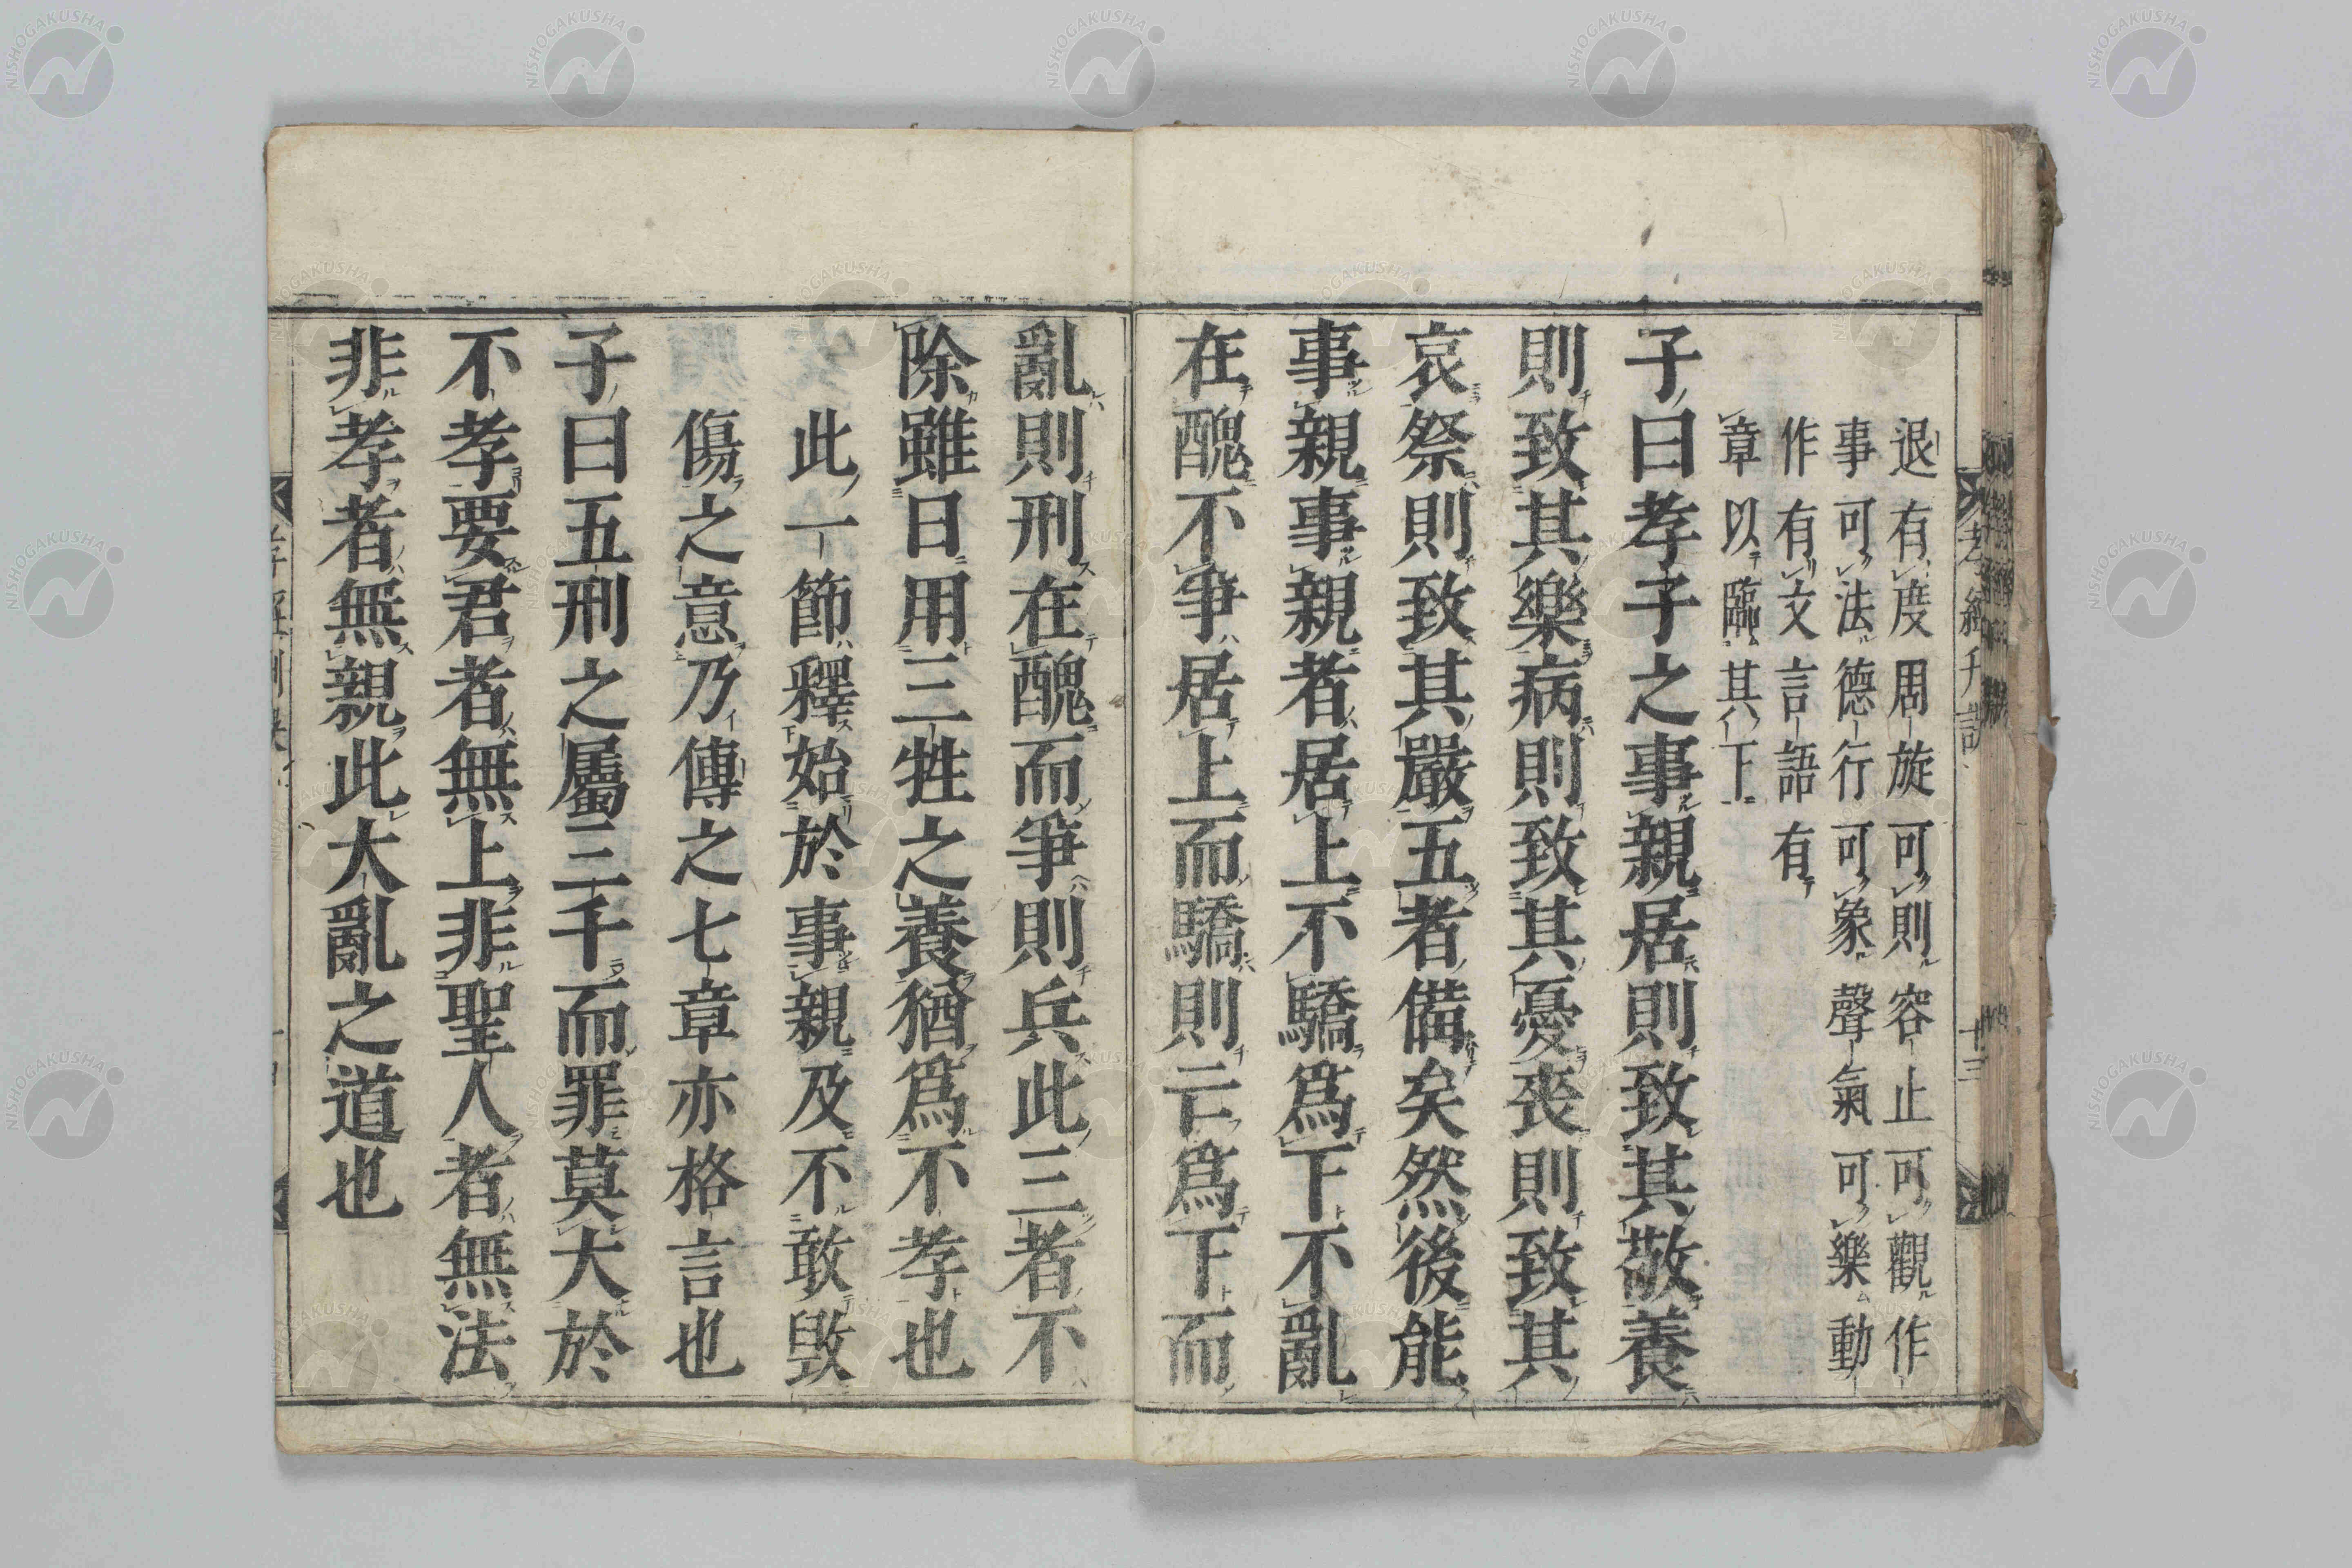 退有度周旋可則容止可觀作
事可法德行可象聲氣可樂動
作有文言語有
章以臨其下
子曰孝子之事親居則致其敬養
則致其樂病則致其憂喪則致其
哀祭則致其嚴五者備矣然後能
事親事親者居上不驕爲下不亂
在醜不爭居上而驕則亡爲下而
亂則刑在醜而爭則兵此三者不
除雖日用三牲之養猶爲不孝也
此一節釋始於事親及不敢毀
傷之意乃傳之七章亦格言也
子曰五刑之屬三千而罪莫大於
不孝要君者無上非聖人者無法
非孝者無親此大亂之道也
十三
NISHOGAKUSHA